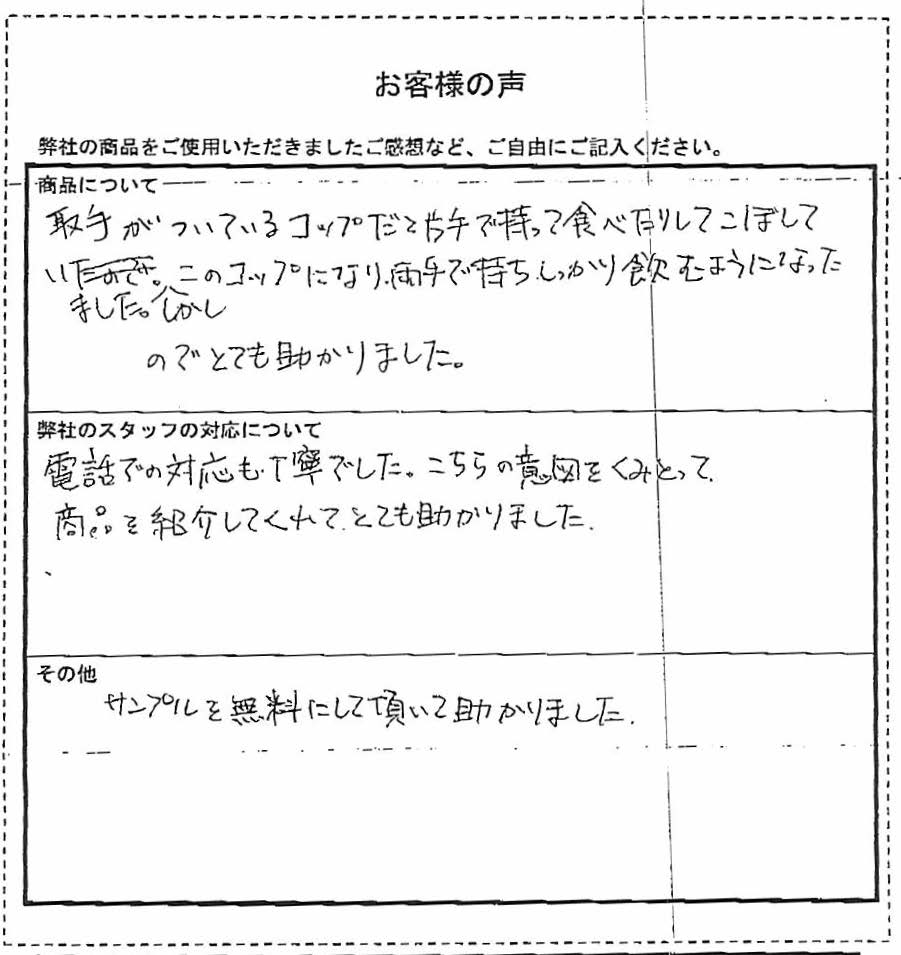 お客様の声
弊社の商品をご使用いただきましたご感想など、ご自由にご記入ください。
商品について
取手がついているコップだと片手で持って食べたりしてこぼして
いた。このコップになり、両手で持ち、しっかり飲むようになった
ました。しかし
のでとても助かりました。
弊社のスタッフの対応について
電話での対応も丁寧でした。こちらの意図をくみとって、
商品を紹介してくれて、とても助かりました。
その他
サンプルを無料にして頂いて助かりました。